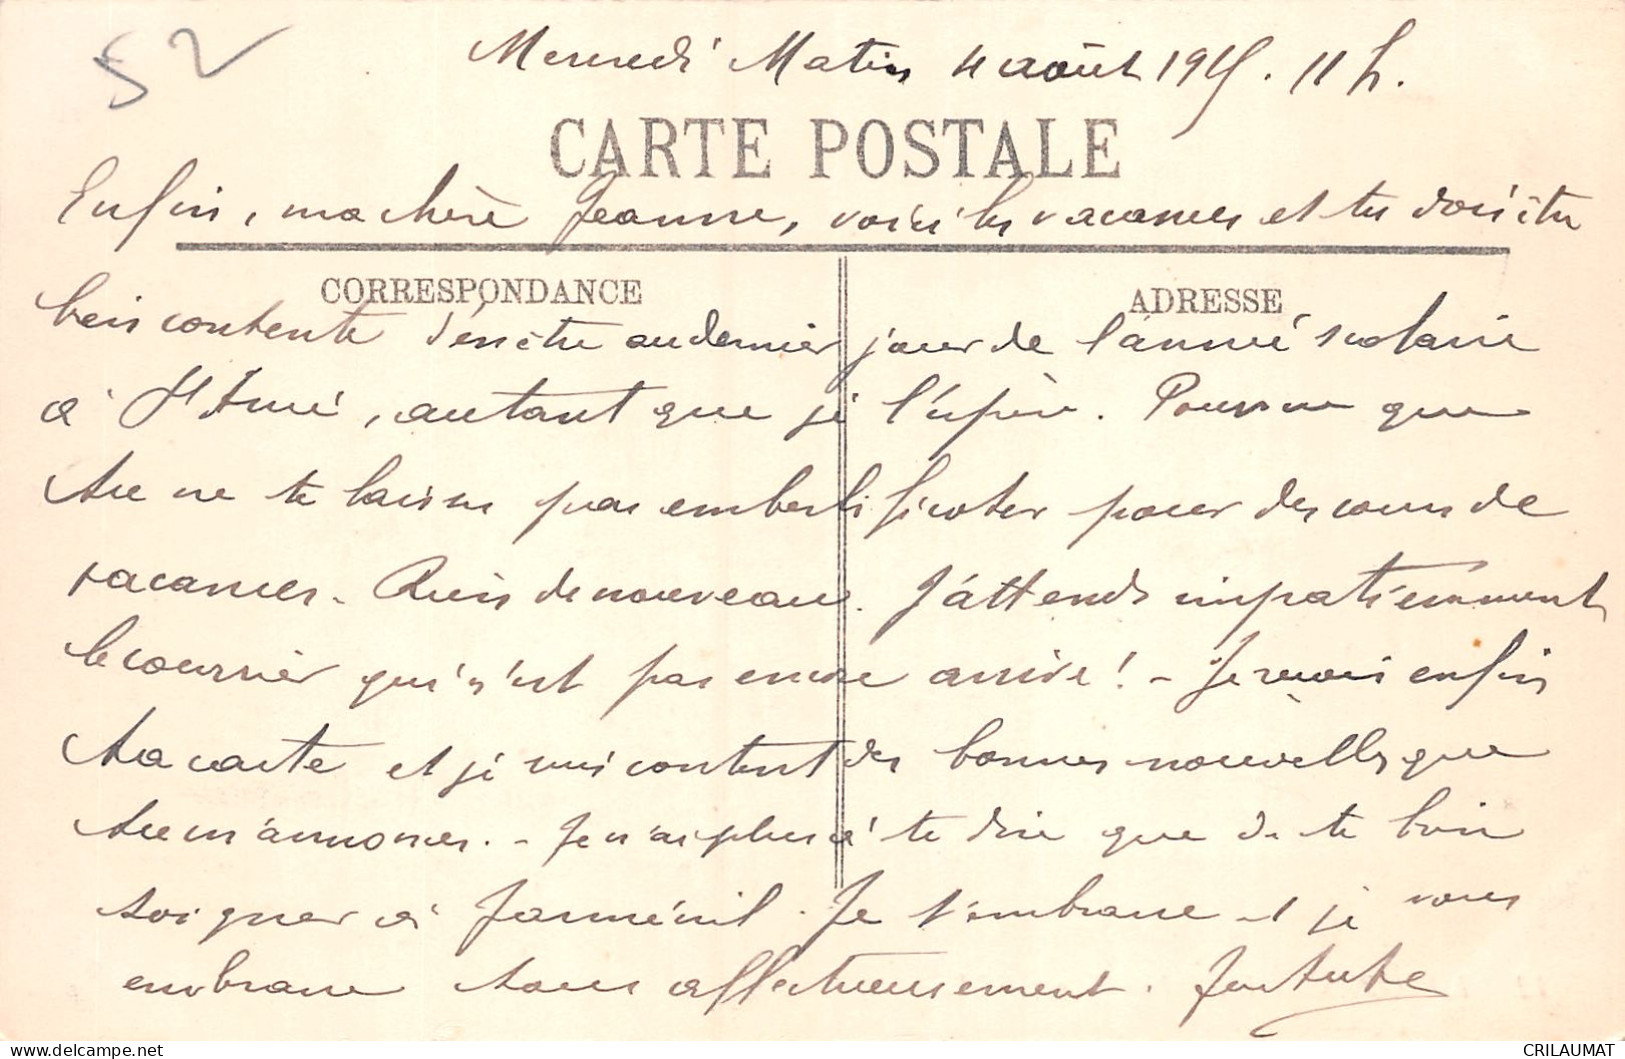 52
Mercredi Matin 4 août 1915. 11 h.
CARTE POSTALE
Enfin, ma chère Jeanne, voici les vacances et tu dois être
CORRESPONDANCE
ADRESSE
bien contente d'en être au dernier jour de l'année scolaire
à St Amé, autant que je l'espère. Pourvu que
tu ne te laisses pas emberlificoter pour des cours de
vacances. Rien de nouveau. J'attends impatiemment
le courrier qui n'est pas encore arrivé! - Je reçois enfin
ta carte et je suis content des bonnes nouvelles que
tu m'annonces. - Je n'ai plus à te dire que de te bien
soigner à Jarménil. Je t'embrasse et je vous
embrasse tous affectueusement.
CRILAUMAT